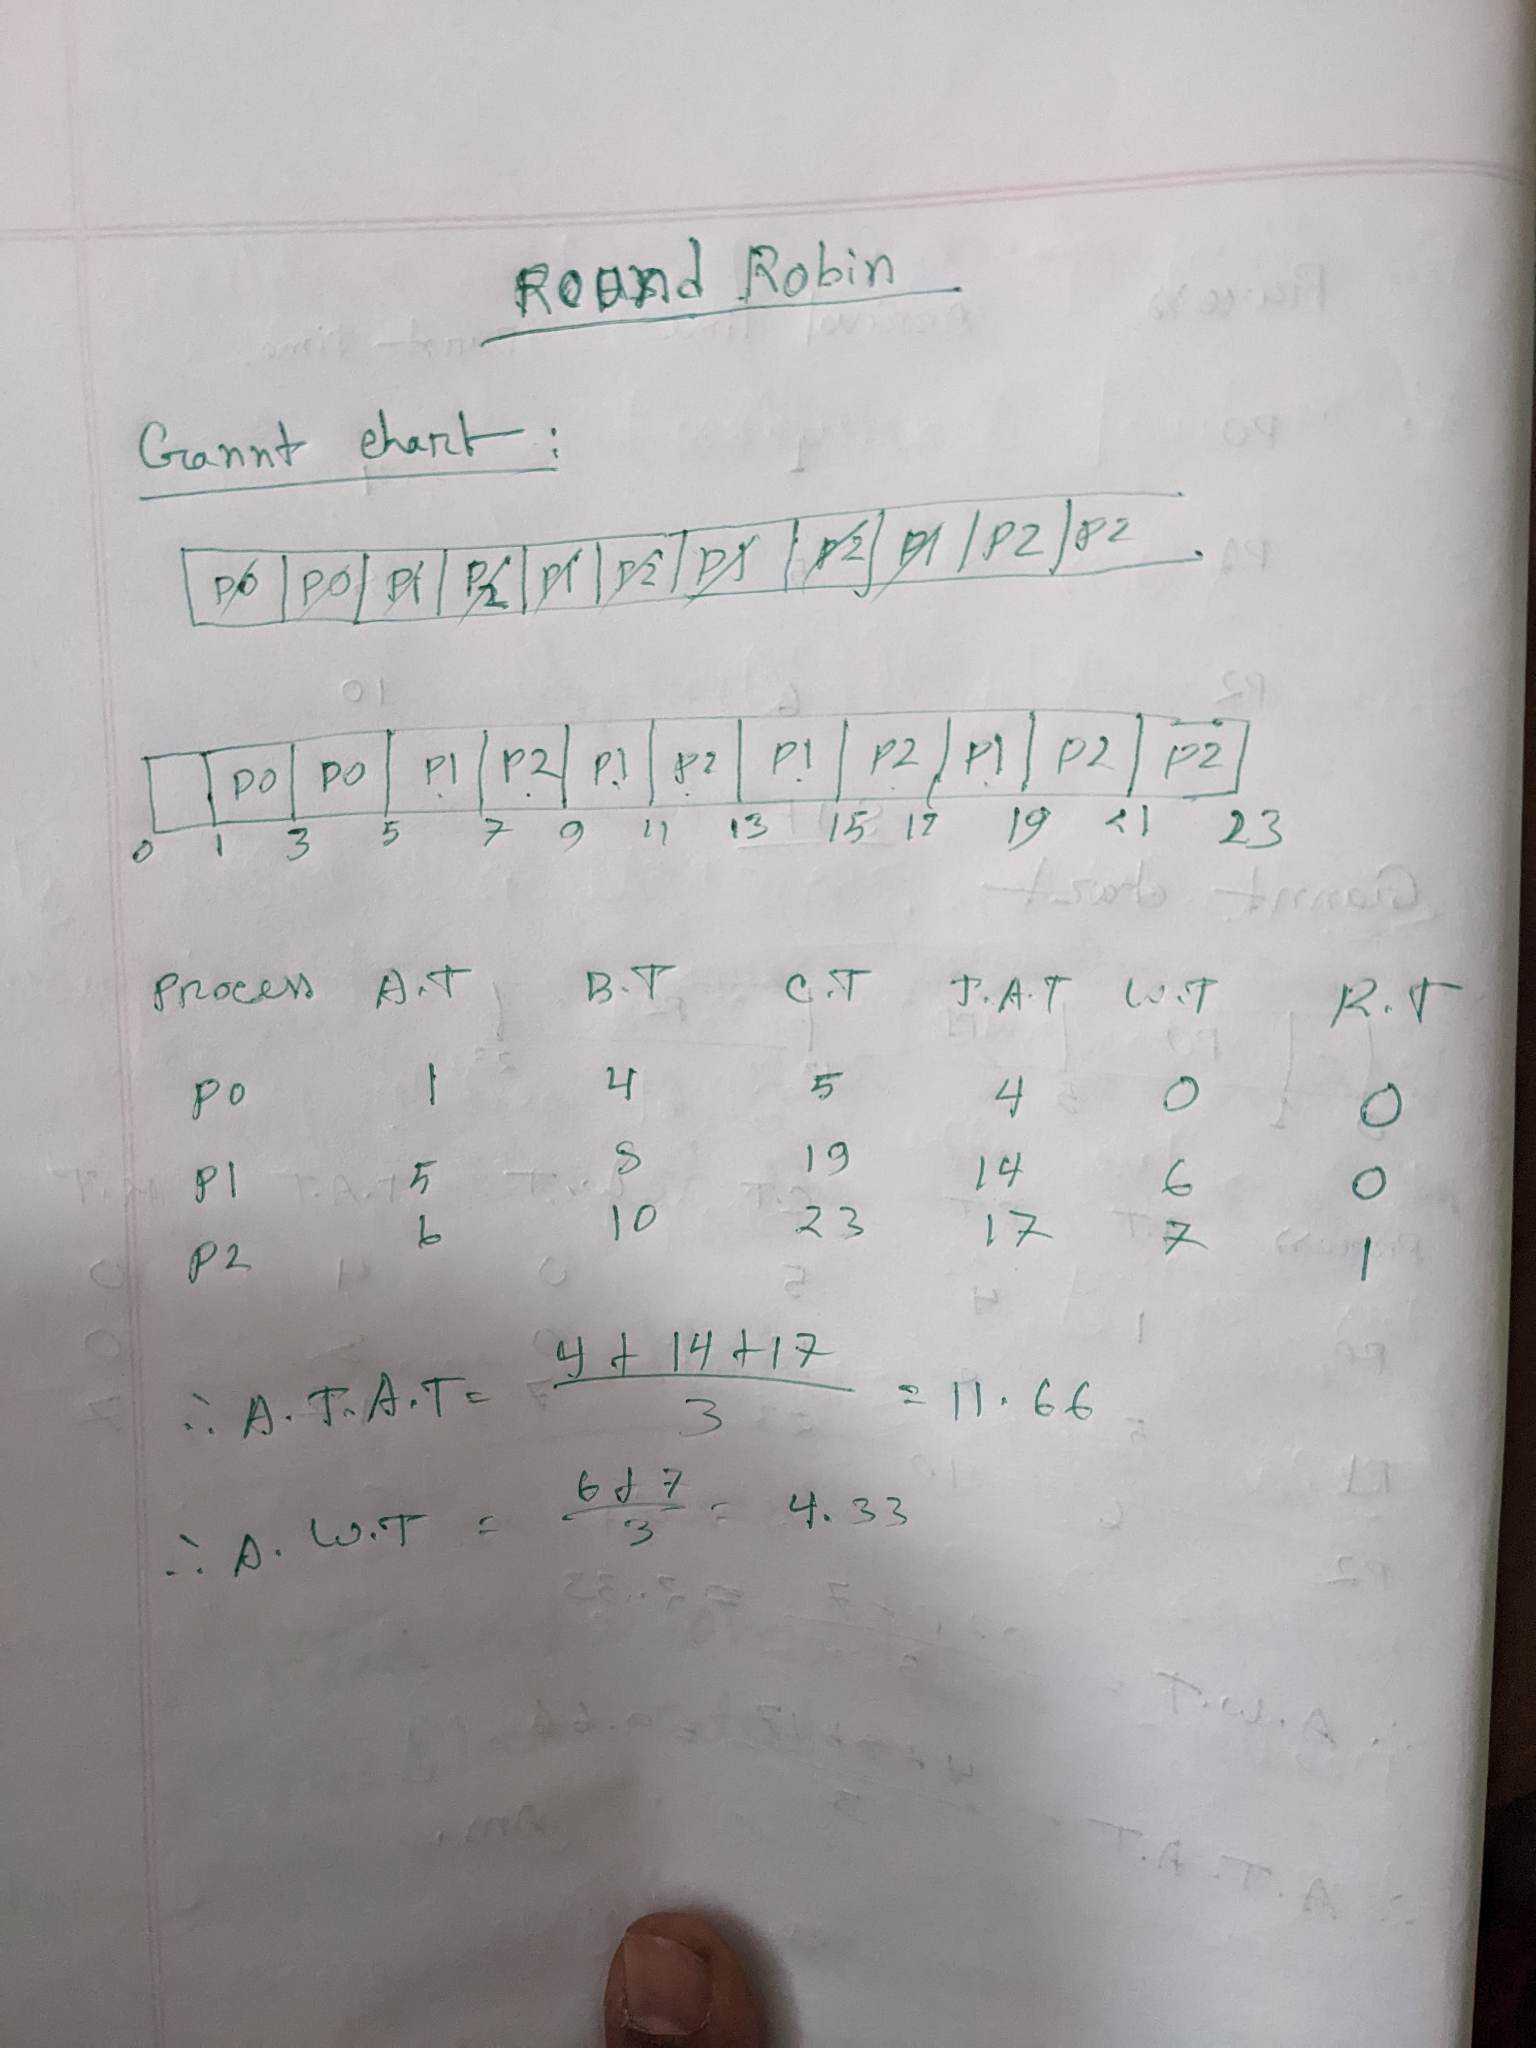 Round Robin
Grannt chart :
P0 P0 P1 P2 P1 P2 P1 P2 P1 P2 P2
P0 P0 P1 P2 P1 P2 P1 P2 P1 P2 P2
0 1 3 5 7 9 11 13 15 17 19 21 23
Process A.T B.T C.T T.A.T W.T R.T
P0 1 4 5 4 0 0
P1 5 8 19 14 6 0
P2 6 10 23 17 7 1
∴ A.T.A.T = 4 + 14 + 17 / 3 = 11.66
∴ A. W.T = 6 + 7 / 3 = 4.33